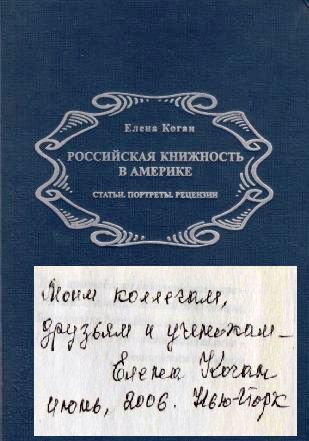 Елена Коган
РОССИЙСКАЯ КНИЖНОСТЬ
В АМЕРИКЕ
СТАТЬИ. ПОРТРЕТЫ. РЕЦЕНЗИИ
Моим коллегам,
друзьям и ученикам –
Елена Коган
июнь, 2006. Нью-Йорк